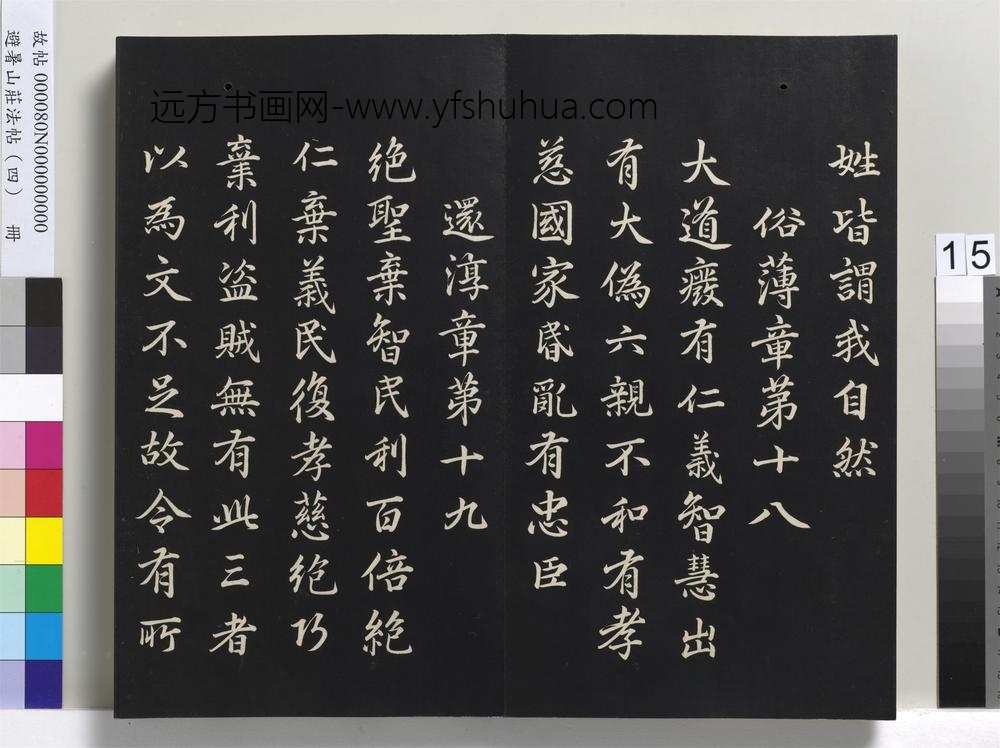 姓皆謂我自然
俗薄章第十八
大道癈有仁義智慧出
有大偽六親不和有孝
慈國家昬亂有忠臣
還淳章第十九
絶聖棄智民利百倍絶
仁棄義民復孝慈絶巧
棄利盗賊無有此三者
以為文不足故令有所
远方书画网-www.yfshuhua.com
故帖 000080N000000000
避暑山莊法帖（四） 冊
15